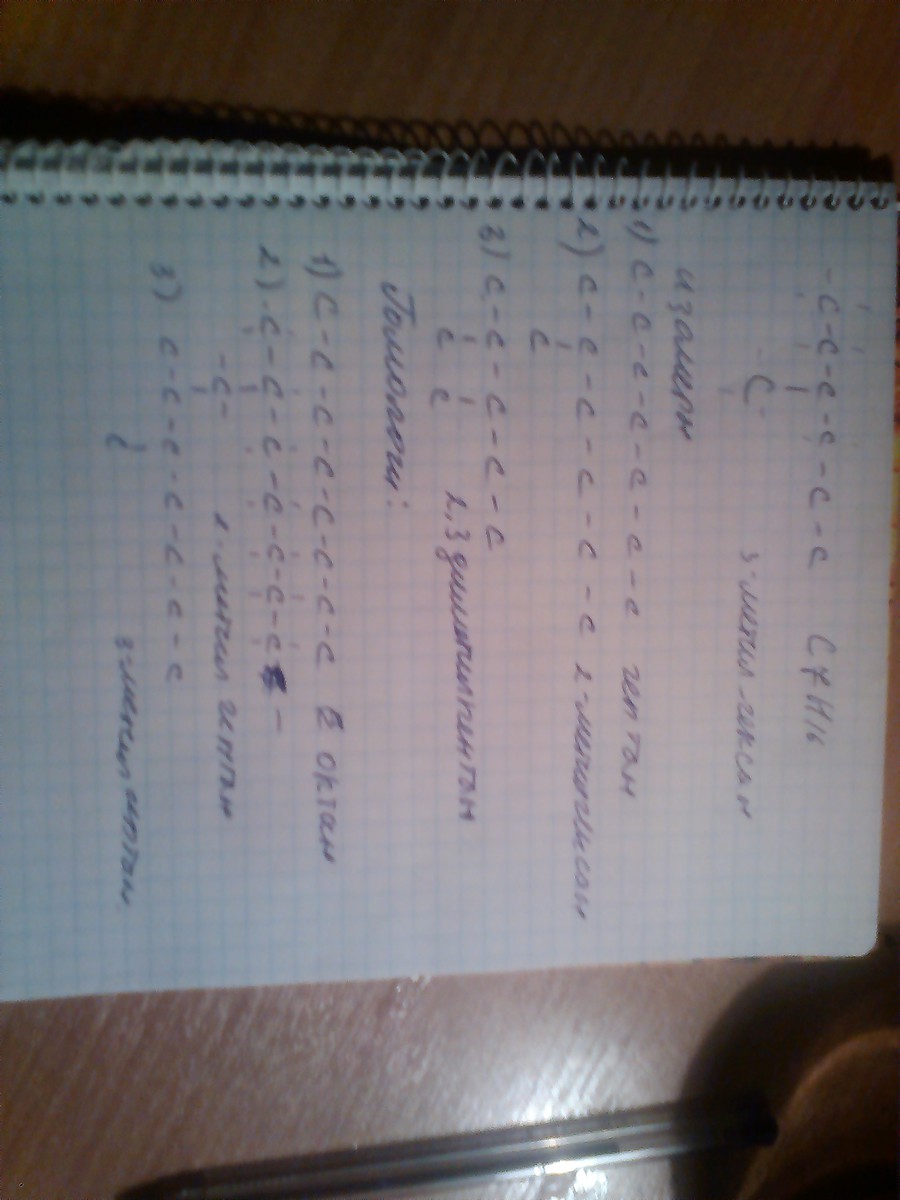 -C-C-C-C-C-C C7H16
-C-
3-метил-гексан
изомеры
1) C-C-C-C-C-C-C гептан
2) C-C-C-C-C-C 2-метилгексан
C
3) C-C-C-C-C
C C 2,3диметилпентан
Гомологи:
1) C-C-C-C-C-C-C-C октан
2) -C-C-C-C-C-C-C-
-C- 2-метил гептан
3) C-C-C-C-C-C-C
C 3-метил гептан.